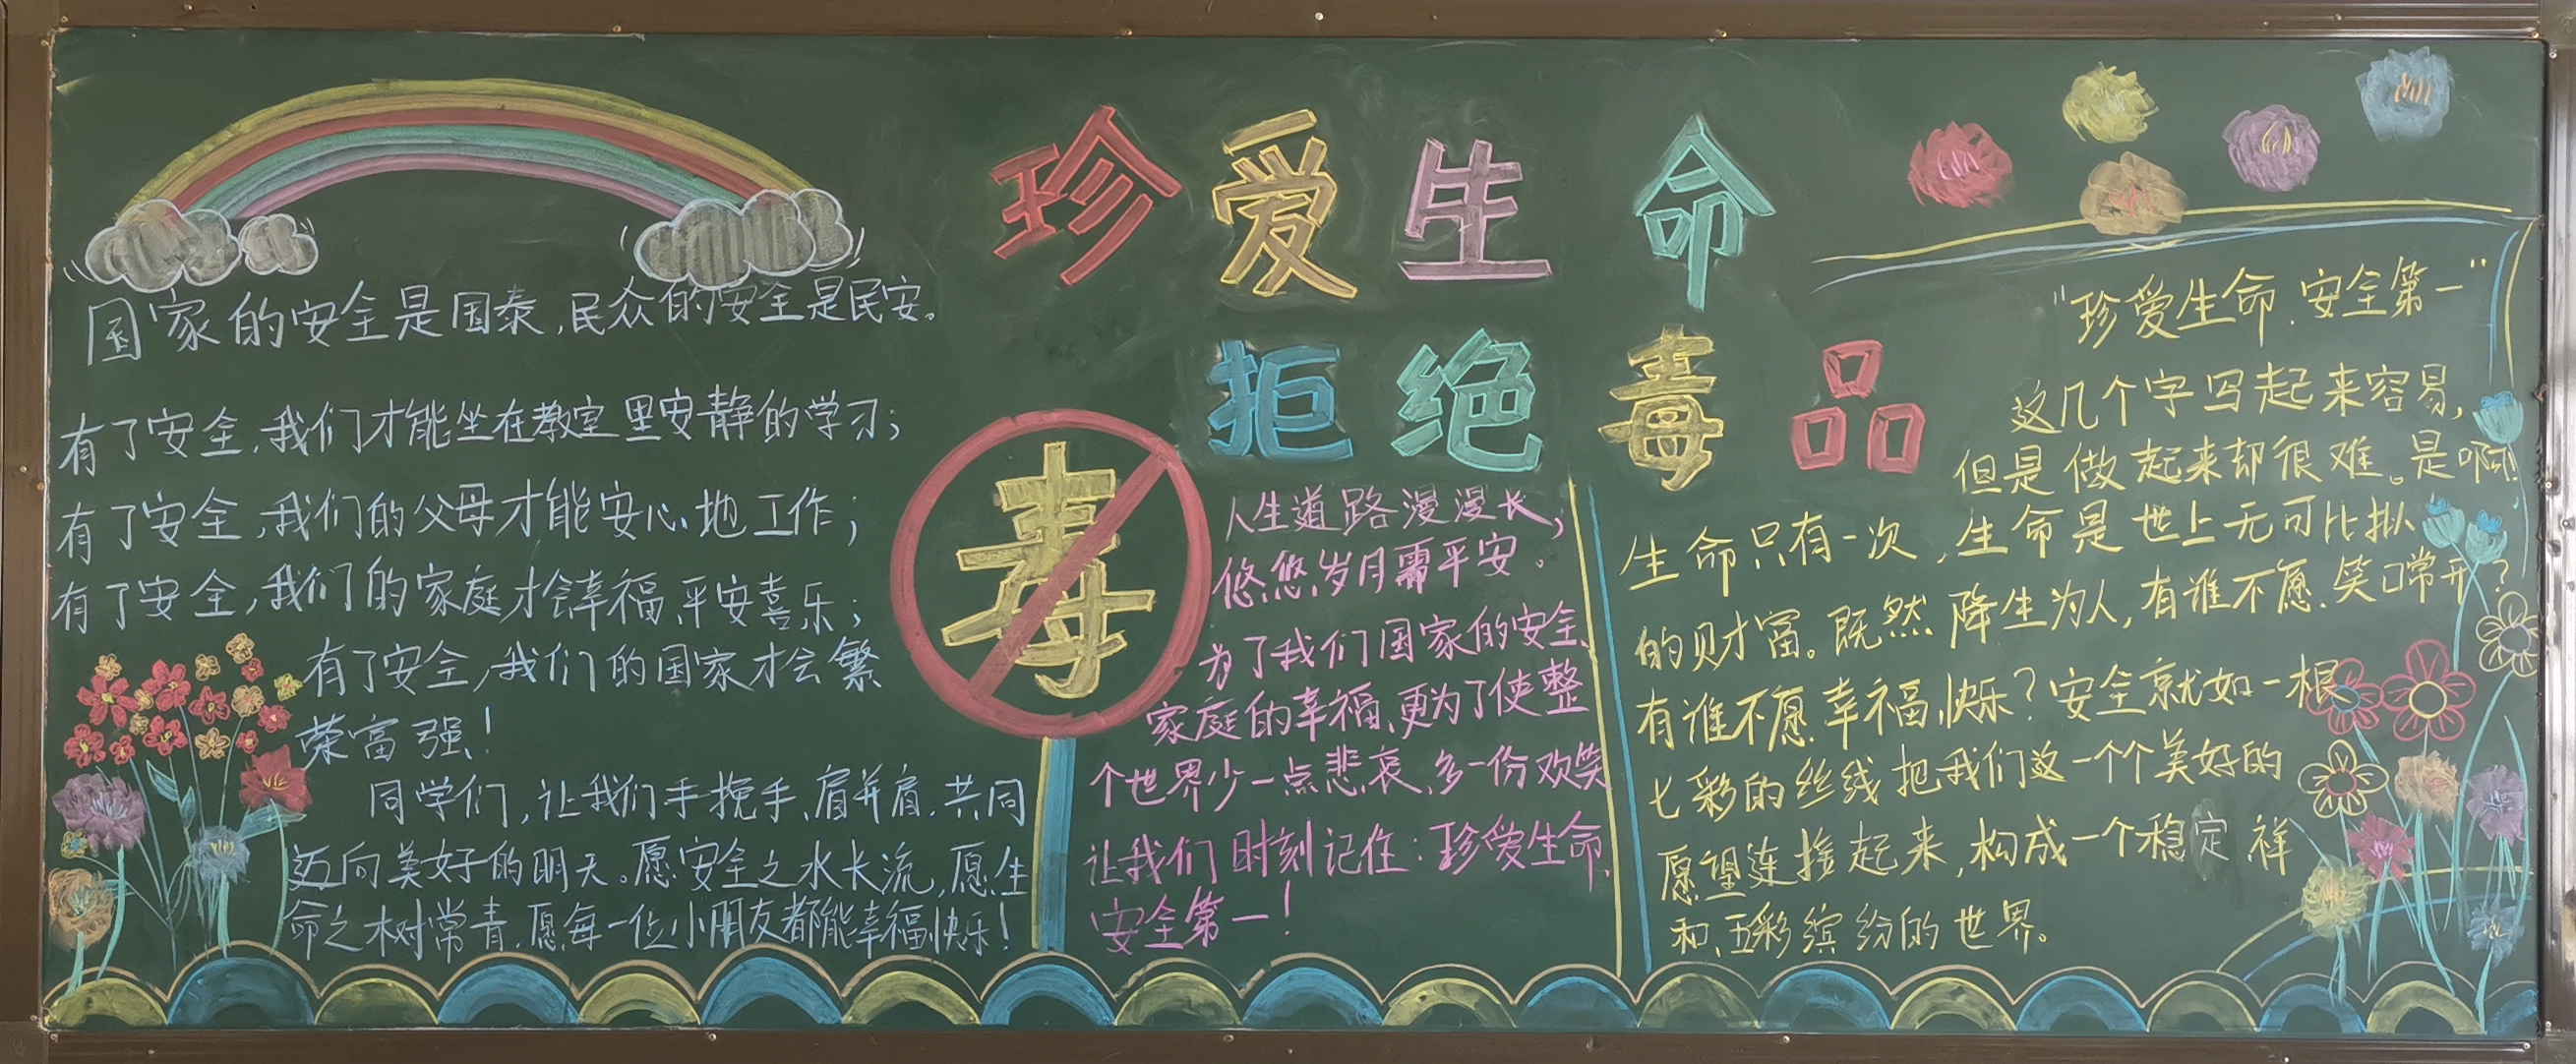 珍爱生命
拒绝毒品
国家的安全是国泰,民众的安全是民安。
有了安全,我们才能坐在教室里安静的学习;
有了安全,我们的父母才能安心地工作;
有了安全,我们的家庭才会幸福、平安喜乐;
有了安全,我们的国家才会繁
荣富强!
同学们,让我们手挽手、肩并肩,共同
迈向美好的明天。愿安全之水长流,愿生
命之树常青,愿每一位小朋友都能幸福快乐!
毒
人生道路漫漫长,
悠悠岁月需平安。
为了我们国家的安全、
家庭的幸福,更为了使整
个世界少一点悲哀,多一份欢笑
让我们时刻记住:珍爱生命、
安全第一!
"珍爱生命、安全第一"
这几个字写起来容易,
但是做起来却很难。是啊!
生命只有一次,生命是世上无可比拟
的财富。既然降生为人,有谁不愿笑口常开?
有谁不愿幸福快乐?安全就如一根
七彩的丝线把我们这一个个美好的
愿望连接起来,构成一个稳定、祥
和、五彩缤纷的世界。